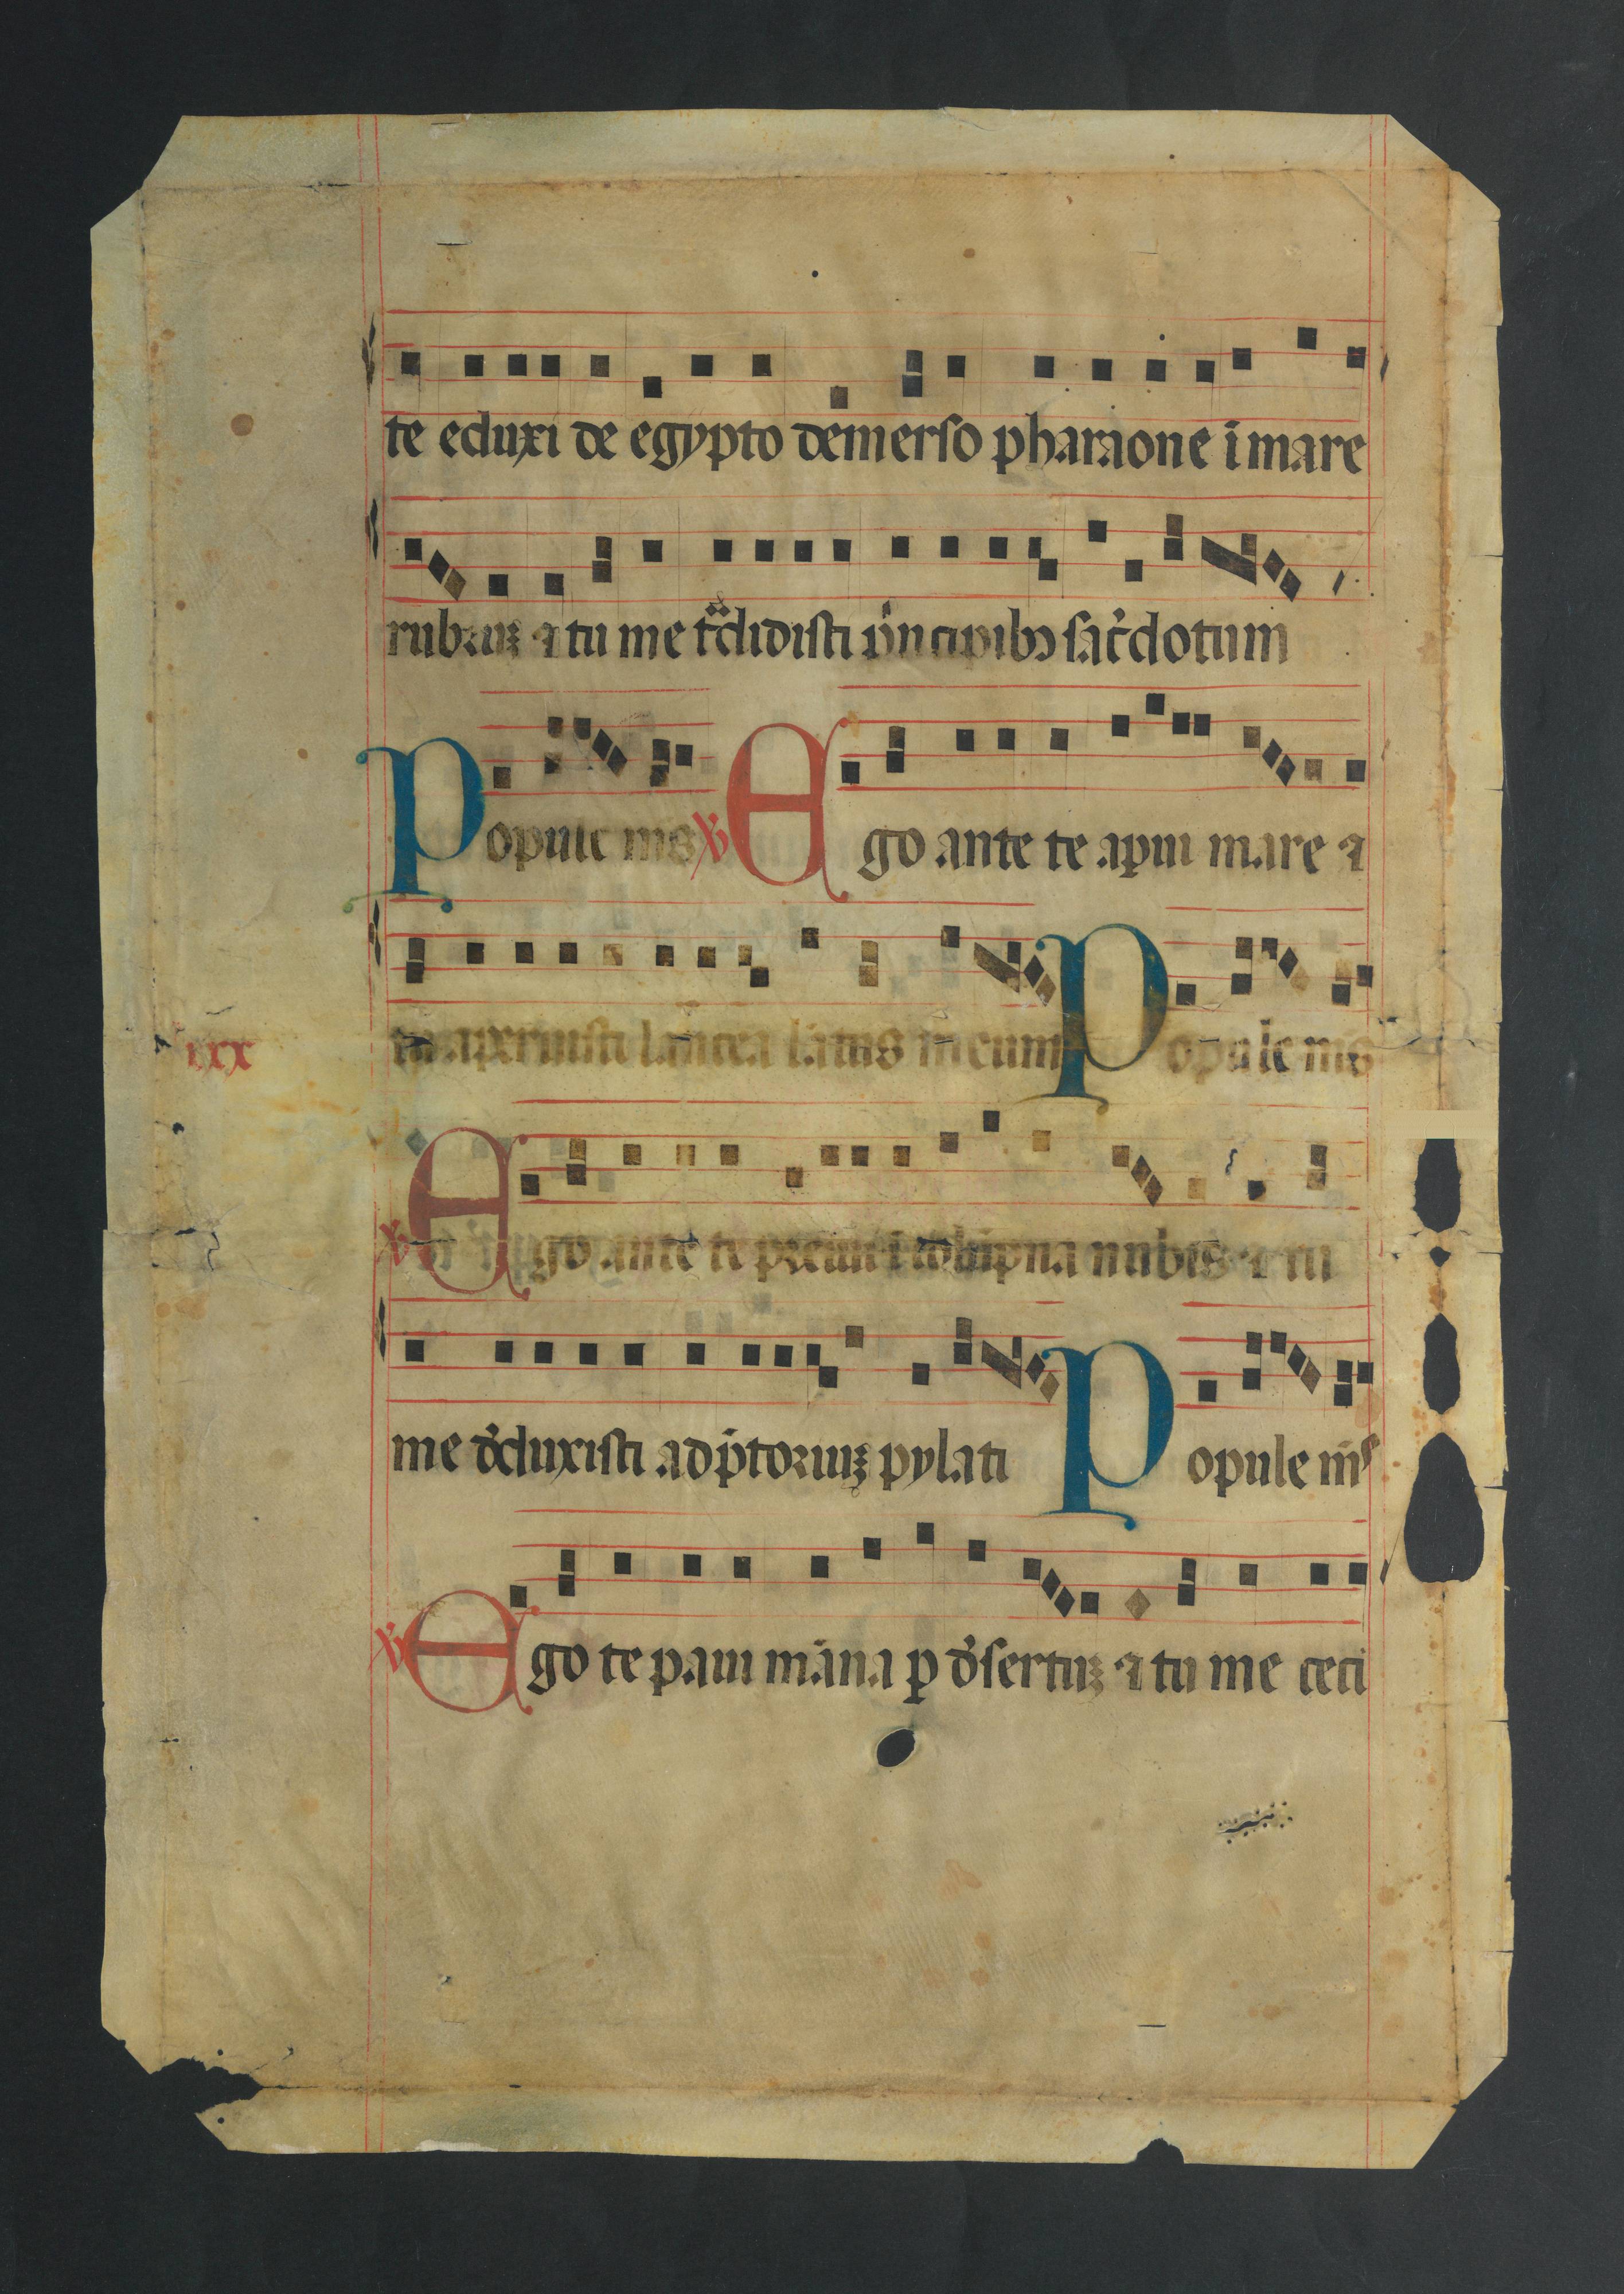 te eduxi de egypto demerso pharaone ī mare
rubruꝫ ⁊ tu me t̃didisti pͥncipibꝯ sac̓dotum
Popule m̅s ℣ Ego ante te aꝑui mare ⁊
tu aperuisti lancea latus meum Popule m̅s
ixx
℣ Ego ante te preiui ī colūpna nubis ⁊ tu
me d̓duxisti ad p̄toriuꝫ pylati Popule m̅s
℣ Ego te paui māna ꝑ d̓sertuꝫ ⁊ tu me ceci